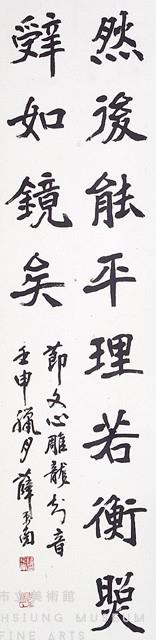 然後能平理若衡照
辭如鏡矣
節文心雕龍知音
壬申臘月薛平南
市立美術館
HSIUNG MUSEUM
FINE ARTS